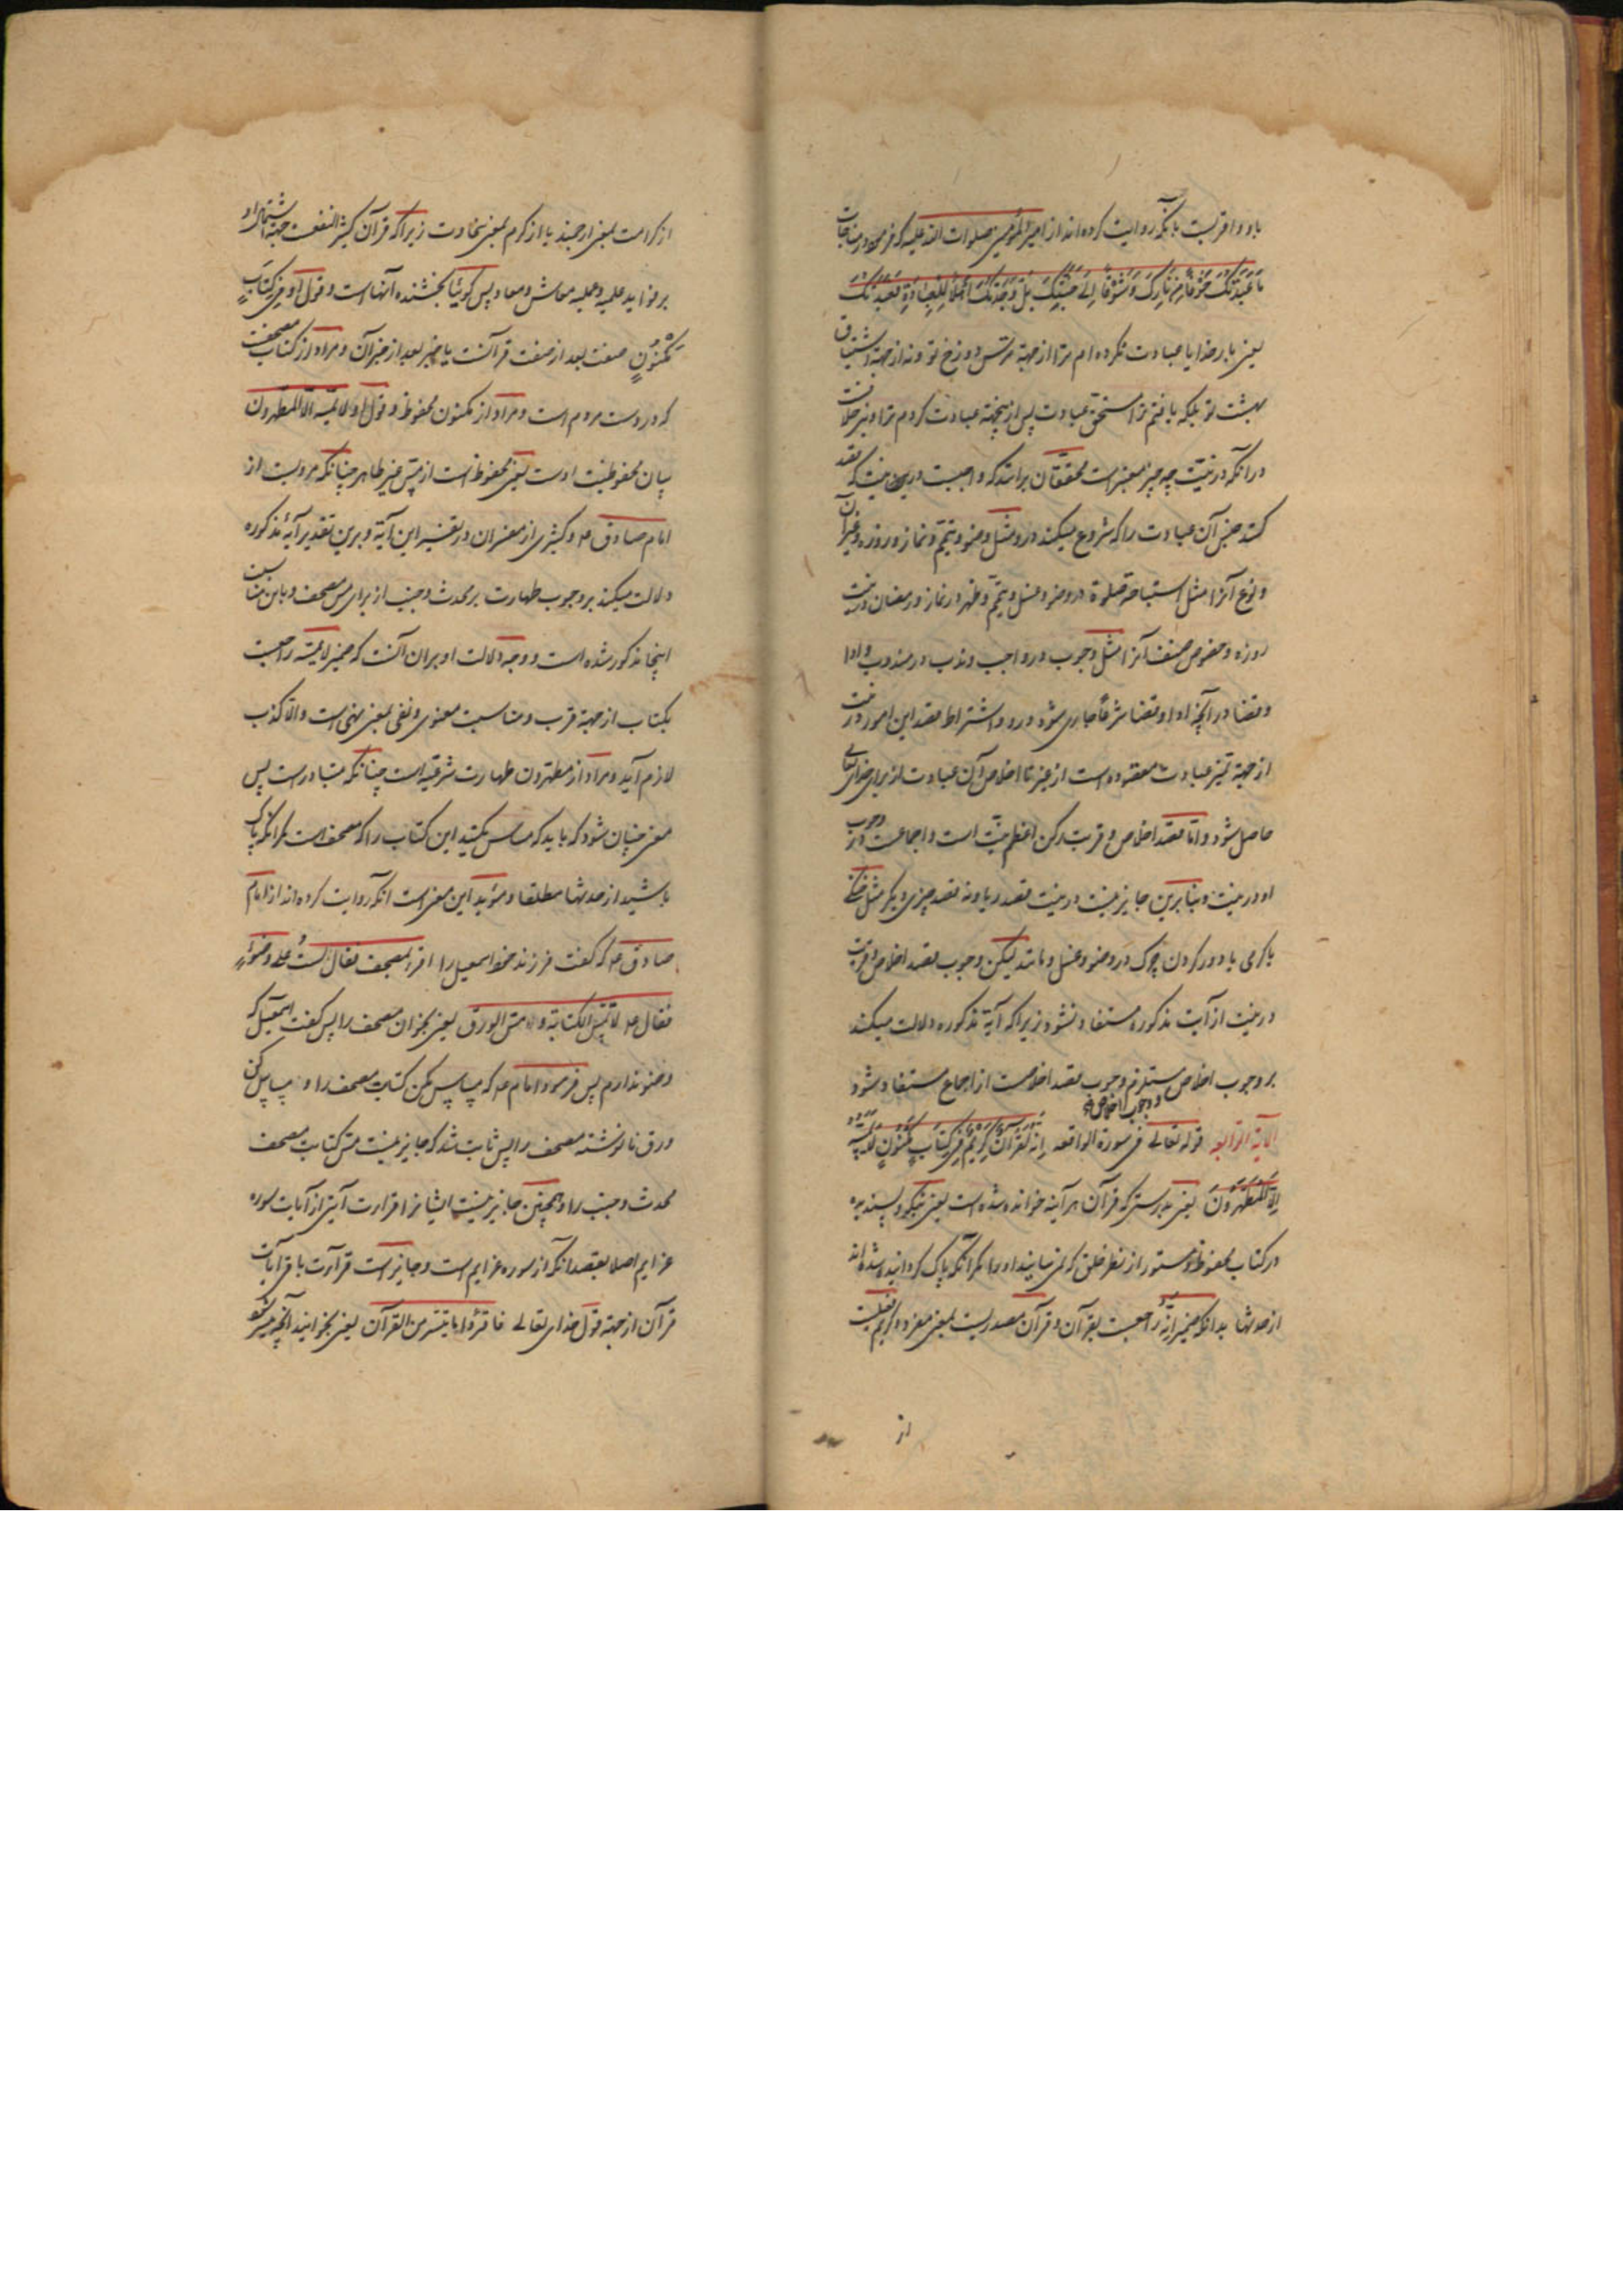 باو و اقربست بآنکه روایت کرده‌اند از امیرالمؤمنین صلوات الله علیه که فرموده در مناجات
مَا عَبَدْتُكَ خَوْفًا مِنْ نَارِكَ وَشَوْقًا اِلَى جَنَّتِكَ بَلْ وَجَدْتُكَ اَهْلًا لِلْعِبَادَةِ فَعَبَدْتُكَ
یعنی بار خدایا عبادت نکرده‌ام ترا از جهة ترس دوزخ تو و نه از جهة اشتیاق
بهشت تو بلکه یافتم ترا مستحق عبادت پس ازینجهة عبادت کردم ترا و نیز خلافست
در آنکه در نیت چه چیز معتبر است محققان برانند که واجبست در نیت که قصد
کند جنس آن عبادت را که شروع میکند درو مثل وضو و تیمم و نماز و روزه و غیر آن
و نوع آنرا مثل استباحة صلوة در وضو و غسل و تیمم و ظهر در نماز و رمضان در نیت
روزه و خصوص صنف آنرا مثل وجوب در واجب و ندب در مندوب و ادا
و قضا در آنچه ادا و قضا شرعا جاری شود درو و اشتراط قصد این امور در نیت
از جهة تمیز عبادت مقصوده است از غیر تا اخلاص آن عبادت از برای خدای تعالی
حاصل شود و اما قصد اخلاص و قربت رکن اعظم نیت است و اجماعست در وجوب
او در نیت و بنابرین جایز نیست در نیت قصد ریا و نه قصد چیزی دیگر مثل خنکی
یا گرمی یا دور کردن چرک در وضو و غسل و مانند لیکن وجوب قصد اخلاص و قربت
در نیت از آیت مذکوره مستفاد نشود زیرا که آیهٔ مذکوره دلالت میکند
بر وجوب اخلاص مستلزم وجوب قصد اخلاصست از اجماع مستفاد شود
و وجوب اخلاص
الآیة الرابعة قوله تعالی فی سورة الواقعه اِنَّهُ لَقُرْآنٌ كَرِيمٌ فِي كِتَابٍ مَكْنُونٍ لَا يَمَسُّهُ
اِلَّا الْمُطَهَّرُونَ یعنی بدرستی که قرآن هر آینه خوانده شده است یعنی نیکو و پسندیده
در کتاب محفوظ و مستور از نظر خلق که نمی‌سایند او را مگر آنکه پاک گردانیده شده‌اند
از حدثها بدانکه ضمیر اِنَّهُ راجعست بقرآن و قرآن مصدریست بمعنی مفروه و کریم فعیلست
از
از کرامت بمعنی ارجمند یا از کرم بمعنی سخاوت زیرا که قرآن کثیر النفعست جهة اشتمال او
بر فواید علمیه و عملیه معاش و معاد پس گوییا بخشنده آنهاست و قول او فِي كِتَابٍ
مَكْنُونٍ صفت بعد از صفت قرآنست یا خبر بعد از خبر آن و مراد از کتاب مصحفست
که در دست مردم است و مراد از مکنون محفوظ و قول او لا یمسه الا المطهرون
بیان محفوظیت اوست یعنی محفوظ است از مس غیر طاهر چنانکه مرویست از
امام صادق ع و کثیری از مفسران در تفسیر این آیة و برین تقدیر آیهٔ مذکوره
دلالت میکند بر وجوب طهارت بر محدث و جنب از برای مس مصحف و باین مناسبت
اینجا مذکور شده است و وجه دلالت او بران آنست که ضمیر لا یمسه راجعست
بکتاب از جهة قرب و مناسبت معنوی و نفی بمعنی نهی است والا کذب
لازم آید و مراد از مطهرون طهارت شرعیه است چنانکه متبادر است پس
معنی چنان شود که باید که مساس نکنید این کتاب را که مصحف است مگر آنکه پاک
باشید از حدثها مطلقا و مؤید این معنی است آنکه روایت کرده‌اند از امام
صادق ع که گفت فرزند خود اسمعیل را اقرء المصحف فقال لستُ علی وضوءٍ
فقال ع لا تمس الکتابة و مس الورق یعنی بخوان مصحف را پس گفت اسمعیل که
وضو ندارم پس فرمود امام ع که مساس مکن کتابت مصحف را و مساس کن
ورق نانوشته مصحف را پس ثابت شد که جایز نیست مس کتابت مصحف
محدث و جنب را و همچنین جایز نیست ایشانرا قراءت آیتی از آیات سوره
عزایم اصلا بقصد آنکه از سوره عزایم است و جایز است قراءت باقی آیات
قرآن از جهة قول خدای تعالی فاقرؤا ما تیسر من القرآن یعنی بخوانید آنچه میسر شود